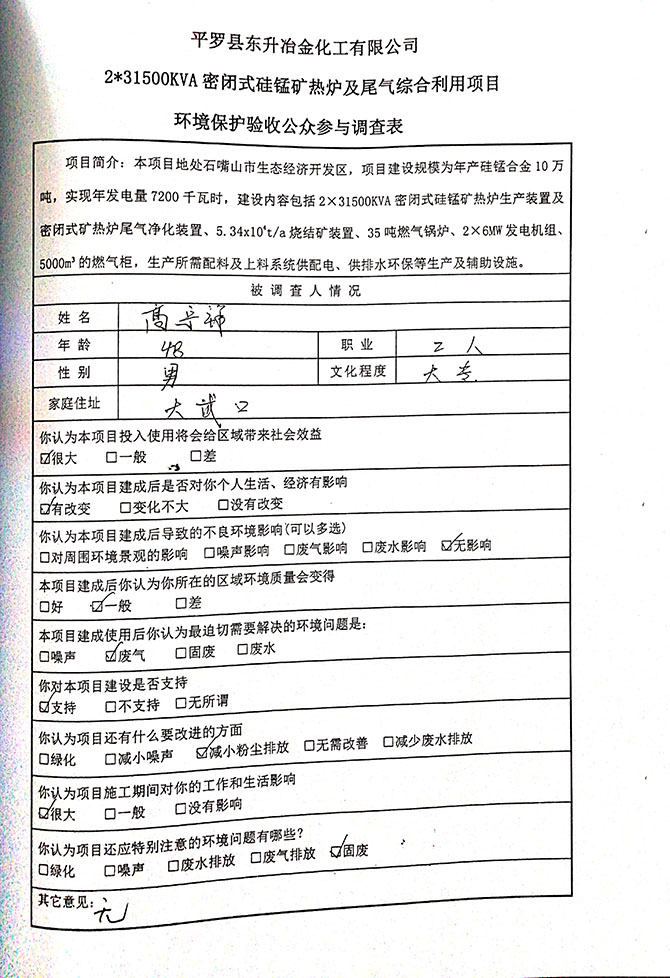 平罗县东升冶金化工有限公司
2*31500KVA 密闭式硅锰矿热炉及尾气综合利用项目
环境保护验收公众参与调查表
项目简介：本项目地处石嘴山市生态经济开发区，项目建设规模为年产硅锰合金 10 万
吨，实现年发电量 7200 千瓦时，建设内容包括 2×31500KVA 密闭式硅锰矿热炉生产装置及
密闭式矿热炉尾气净化装置、5.34x10⁴t/a 烧结矿装置、35 吨燃气锅炉、2×6MW 发电机组、
5000m³ 的燃气柜，生产所需配料及上料系统供配电、供排水环保等生产及辅助设施。
被调查人情况
姓名 高 祥
年龄 48 职业 工人
性别 男 文化程度 大专
家庭住址 大武口
你认为本项目投入使用将会给区域带来社会效益
☑很大 □一般 □差
你认为本项目建成后是否对你个人生活、经济有影响
☑有改变 □变化不大 □没有改变
你认为本项目建成后导致的不良环境影响(可以多选)
□对周围环境景观的影响 □噪声影响 □废气影响 □废水影响 ☑无影响
本项目建成后你认为你所在的区域环境质量会变得
□好 ☑一般 □差
本项目建成使用后你认为最迫切需要解决的环境问题是：
□噪声 ☑废气 □固废 □废水
你对本项目建设是否支持
☑支持 □不支持 □无所谓
你认为项目还有什么要改进的方面
□绿化 □减小噪声 ☑减小粉尘排放 □无需改善 □减少废水排放
你认为项目施工期间对你的工作和生活影响
☑很大 □一般 □没有影响
你认为项目还应特别注意的环境问题有哪些？
□绿化 □噪声 □废水排放 □废气排放 ☑固废
其它意见：无